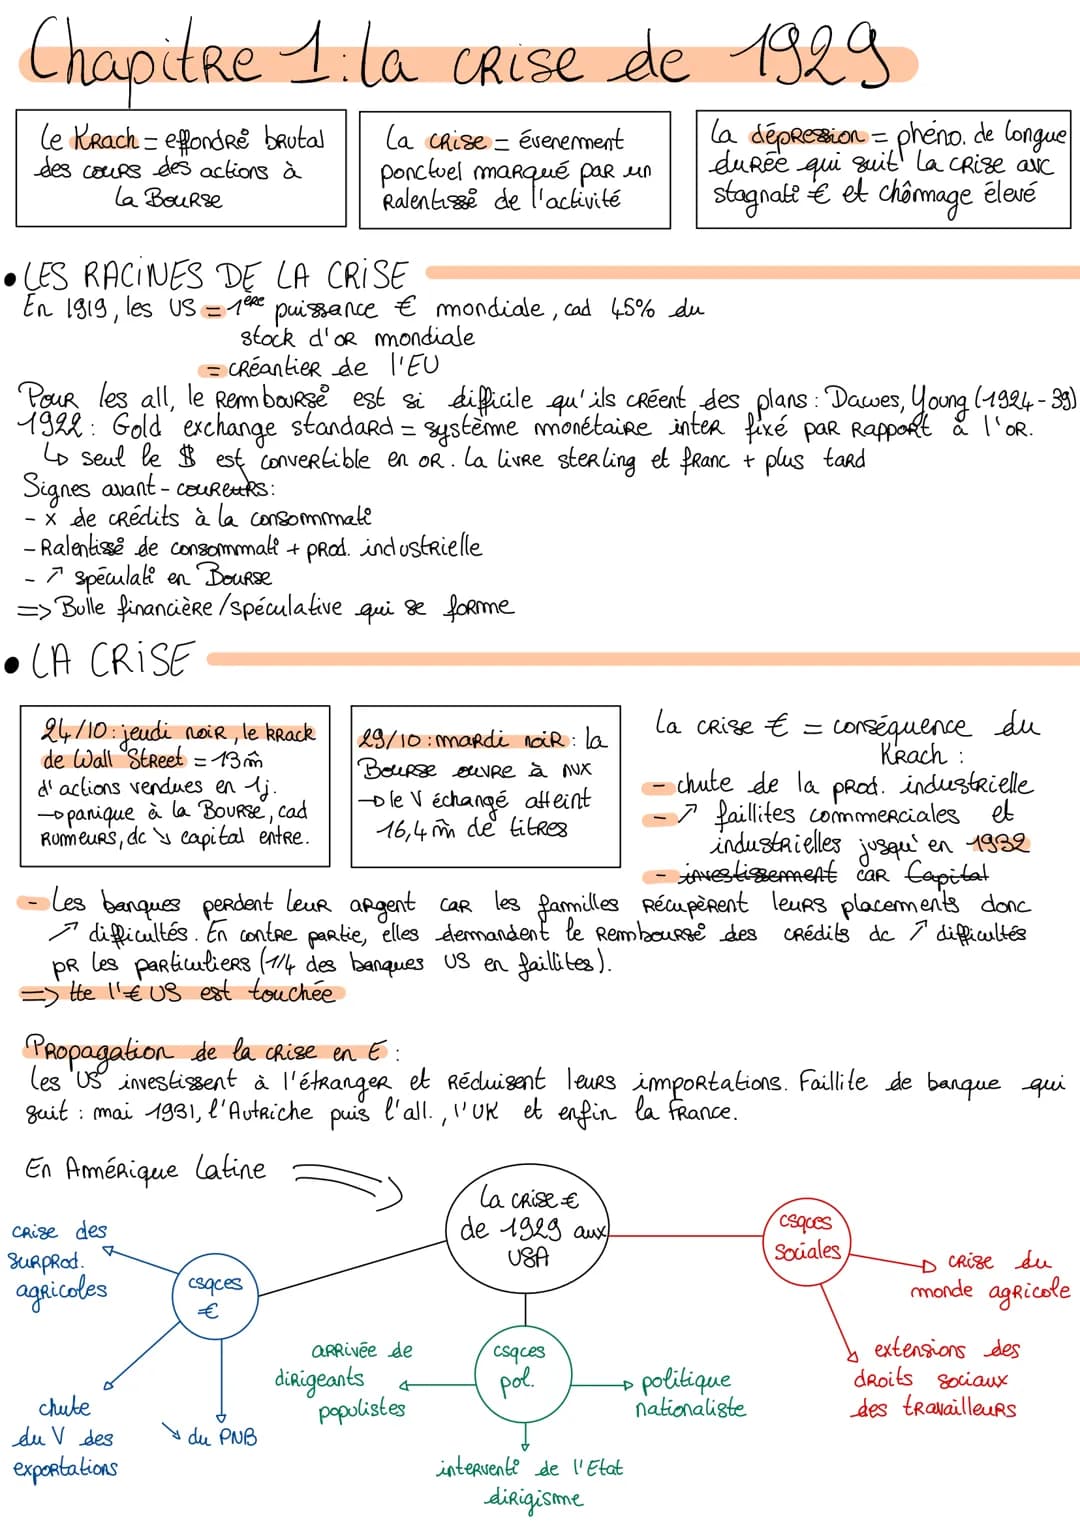 Chapitre 1: la crise de 1929
Le Krach = effondrẽ brutal
des cours des actions à
la Bourse
La crise = évenement
ponctuel marqué par un
Ralentissẽ de l'activité
La dépression = phéno. de longue
durée qui suit la crise avc
stagnatº € et chômage élevé
• LES RACINES DE LA CRISE
En 1919, les US = 1ère puissance € mondiale, cad 45% du
stock d'or mondiale
= créantier de l'EU
Pour les all, le Rembourssẽ est si difficile qu'ils créent des plans : Dawes, Young (1924-39)
1922 : Gold exchange standard = système monétaire inter fixé par rapport à l'or.
↳ seul le $ est convertible en or. La livre sterling et franc + plus tard
Signes avant-coureurs :
- x de crédits à la consommatº
- Ralentissẽ de consommatº + prod. industrielle
- ↗ spéculatº en Bourse
=> Bulle financière / spéculative qui se forme
• LA CRISE
24/10 : jeudi noir, le krack
de Wall Street = 13 m̂
d'actions vendues en 1j.
→ panique à la Bourse, cad
Rumeurs, dc ↘ capital entre.
29/10 : mardi noir : la
Bourse ouvre à nux
→ le V échangé atteint
16,4 m̂ de titres
La crise € = conséquence du
Krach :
- chute de la prod. industrielle
- ↗ faillites commerciales et
industrielles jusqu'en 1932
- investissement car Capital
- Les banques perdent leur argent car les familles récupèrent leurs placements donc
↗ difficultés. En contre partie, elles demandent le Rembourssẽ des crédits dc ↗ difficultés
pr les particuliers (1/4 des banques US en faillites).
=> tte l'€ US est touchée
Propagation de la crise en E :
Les US investissent à l'étranger et réduisent leurs importations. Faillite de banque qui
suit : mai 1931, l'Autriche puis l'all., l'UK et enfin la France.
En Amérique Latine
La crise €
de 1929 aux
USA
csqces
€
crise des
surprod.
agricoles
chute
du V des
exportations
↘ du PNB
csqces
pol.
arrivée de
dirigeants
populistes
politique
nationaliste
interventº de l'Etat
dirigisme
csqces
Sociales
crise du
monde agricole
extensions des
droits sociaux
des travailleurs